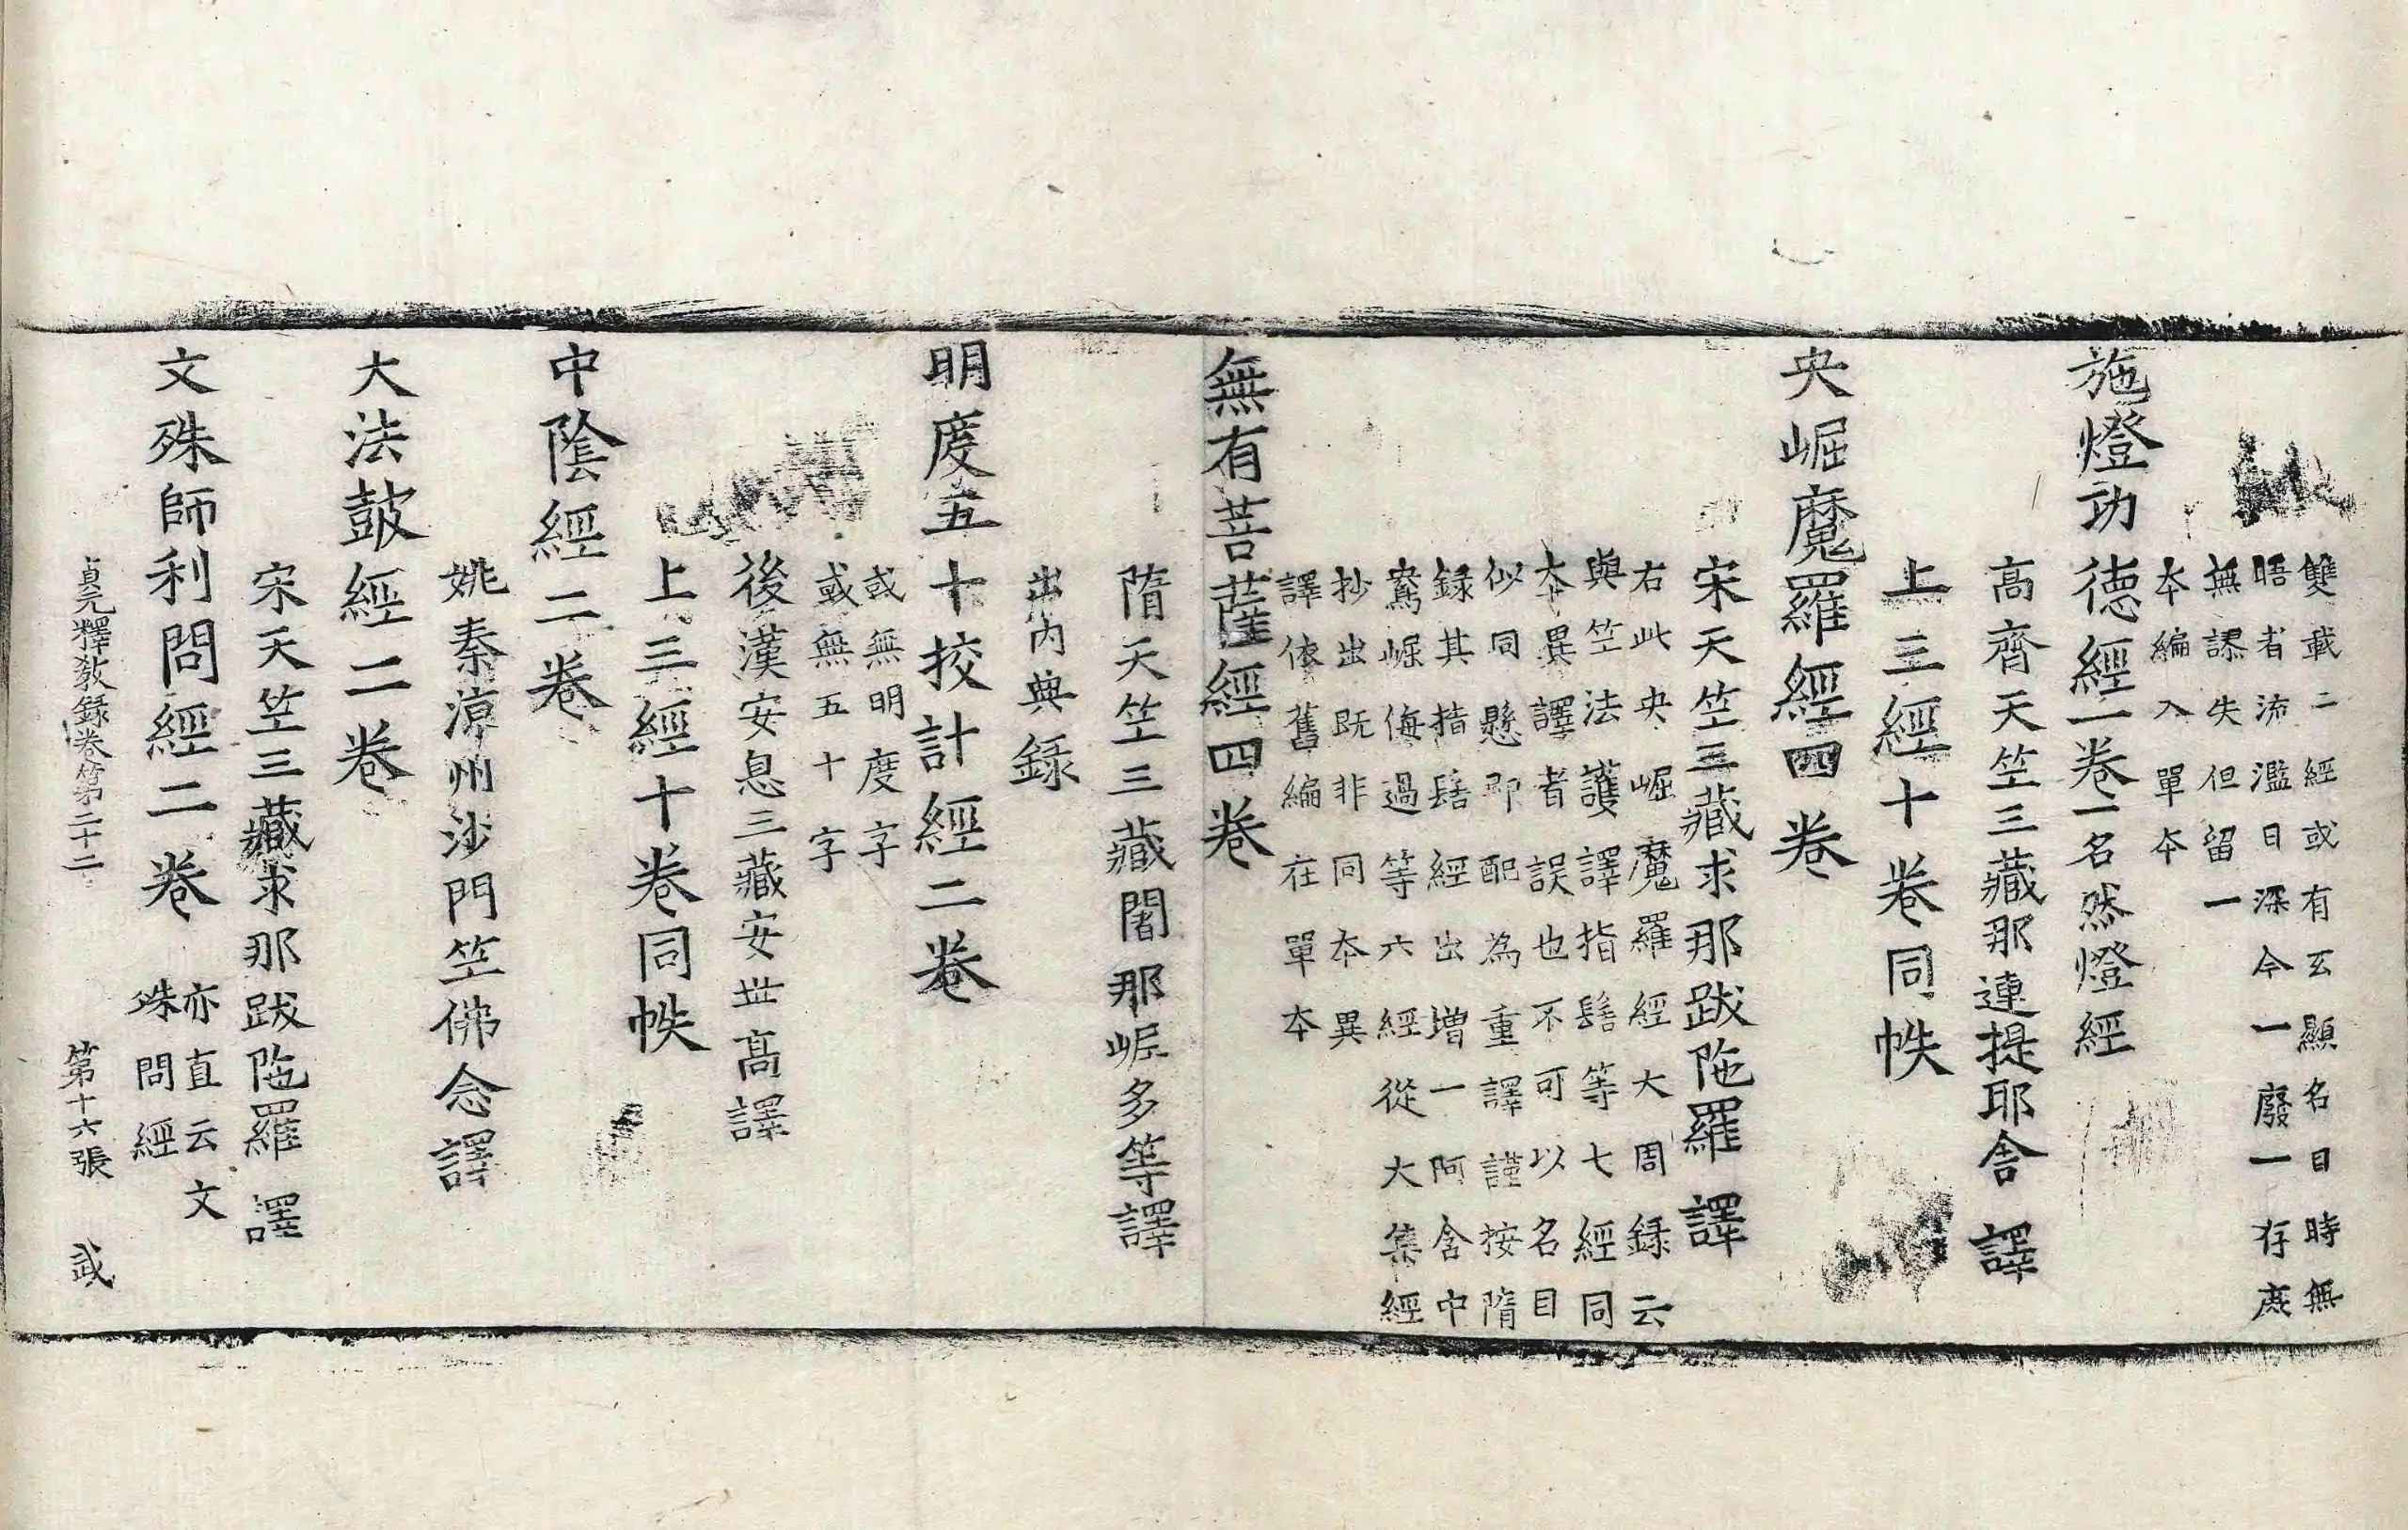 雙載二經或有玄顯名目時無
晤者流濫日深今一廢一存庶
無謬失但留一
本編入單本
施燈功德經一卷一名然燈經
高齊天竺三藏那連提耶舍譯
上三經十卷同帙
央崛魔羅經四卷
宋天竺三藏求那跋陁羅譯
右此央崛魔羅經大周録云
與竺法護譯指髻等七經同
本異譯者誤也不可以名目
似同懸即配為重譯謹按隋
録其指髻經出增一阿含中
鴦崛侮過等六經從大集經
抄出既非同本異
譯依舊編在單本
無有菩薩經四卷
隋天竺三藏闍那崛多等譯
出内典録
明度五十挍計經二卷
或無明度字
或無五十字
後漢安息三藏安世髙譯
上三經十卷同帙
中陰經二卷
姚秦涼州沙門竺佛念譯
大法皷經二卷
宋天竺三藏求那跋陁羅譯
文殊師利問經二卷
亦直云文
殊問經
貞元釋教録卷第二十二 第十六張 武